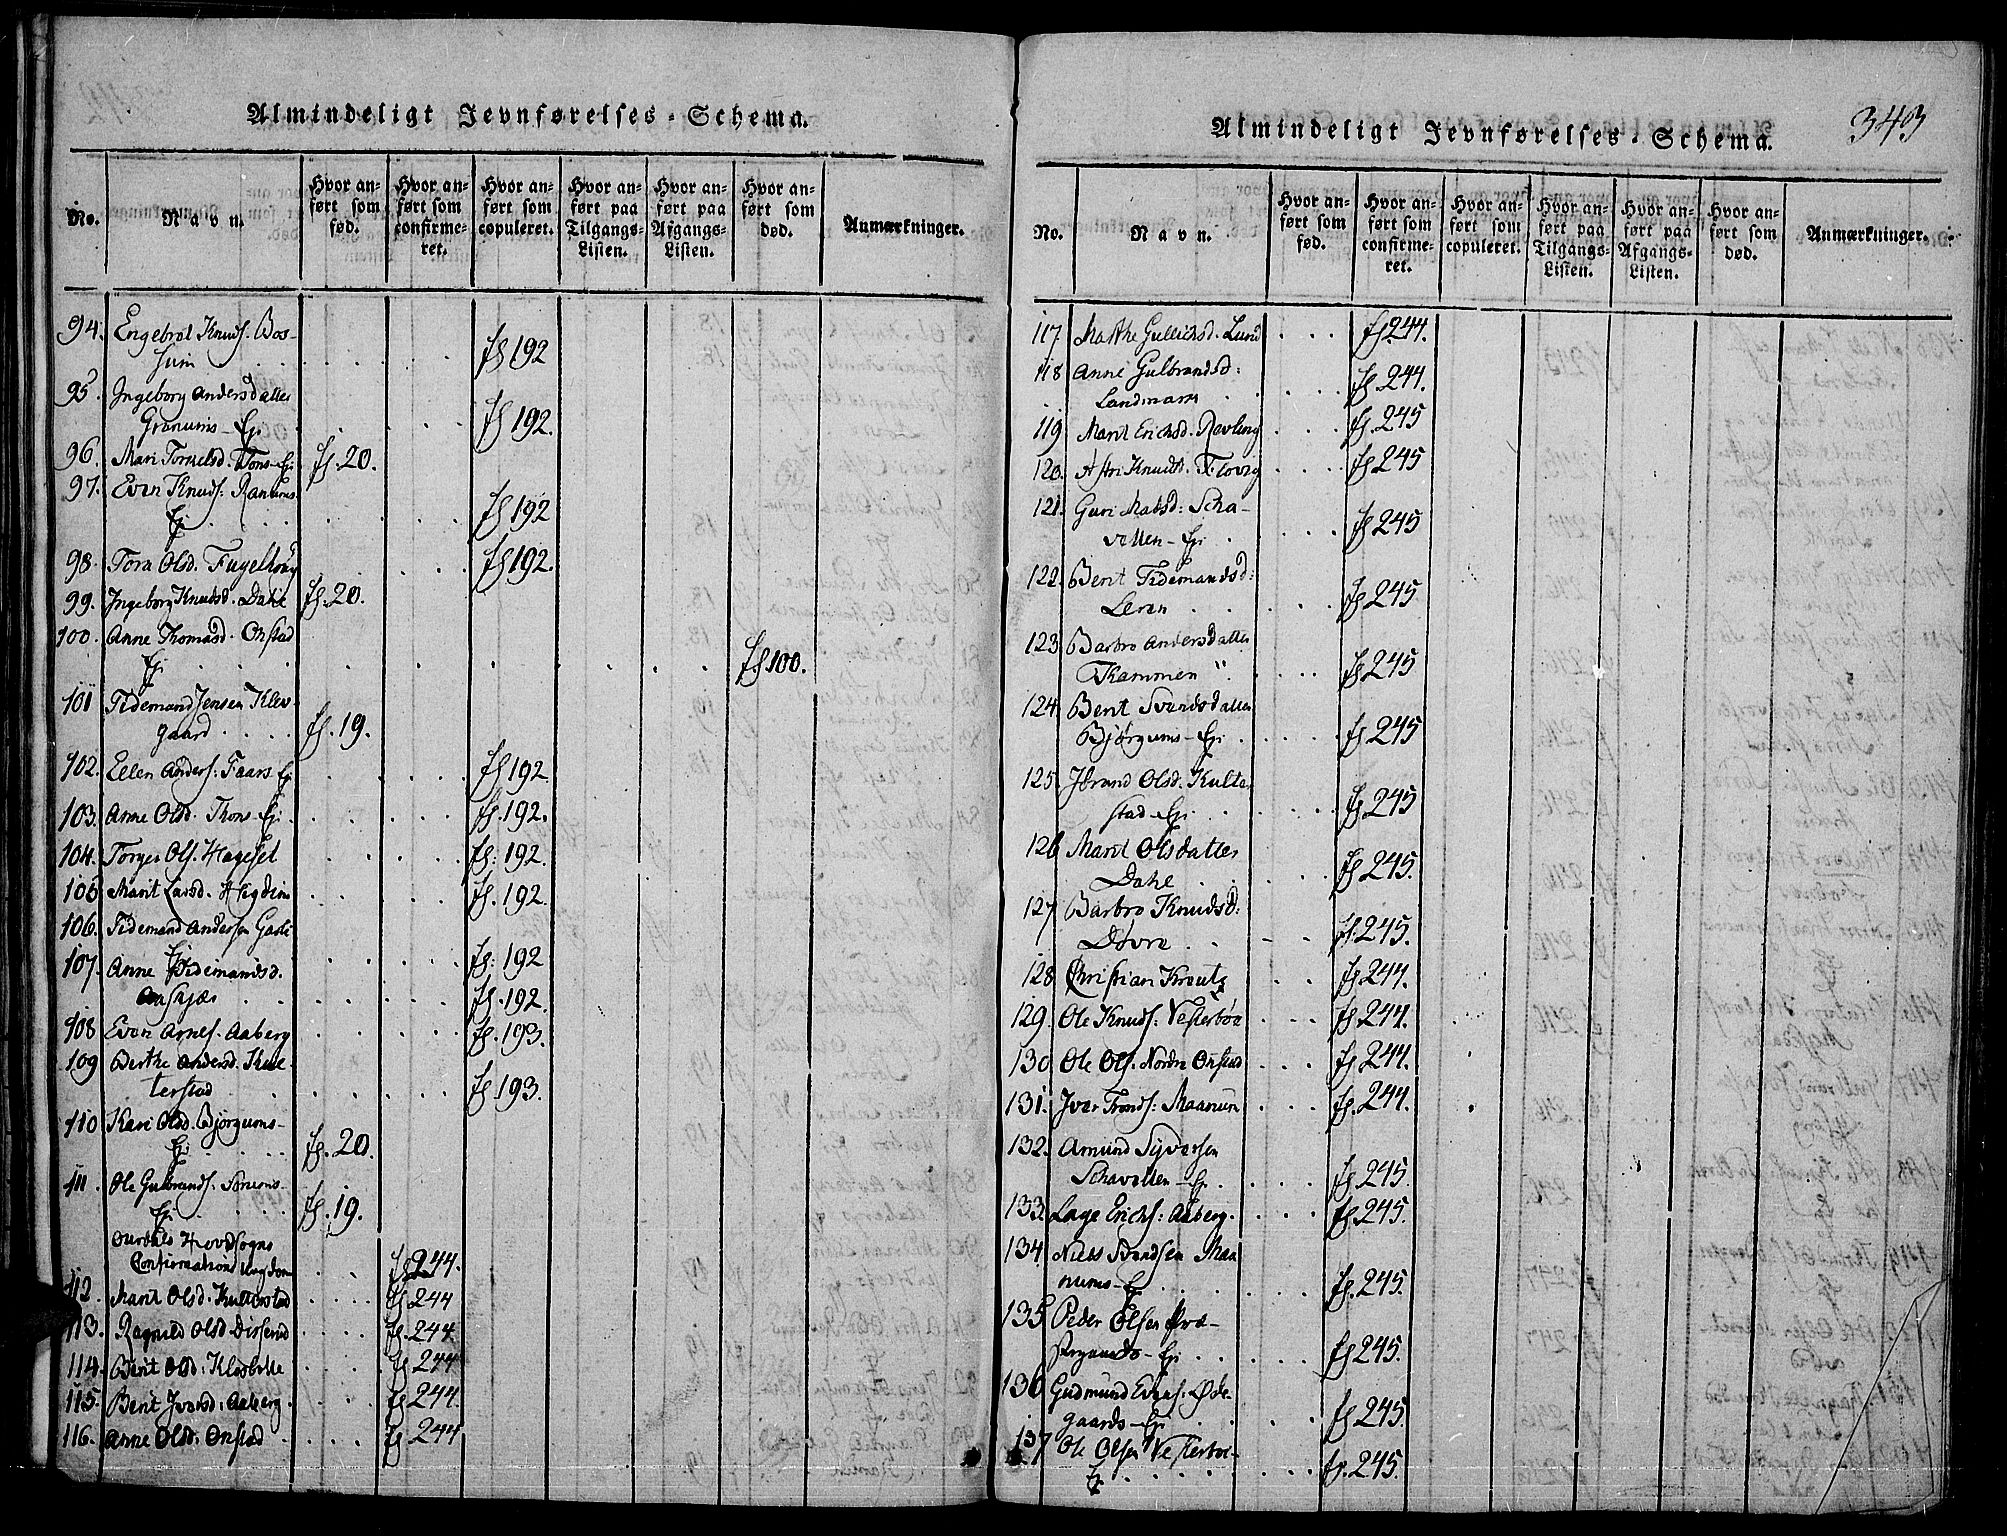 Almindeligt Jevnførelses-Schema.
No.
Navn.
Hvor anført som fød.
Hvor anført som confirmeret.
Hvor anført som copuleret.
Hvor anført paa Tilgangs-Listen.
Hvor anført paa Afgangs-Listen.
Hvor anført som død.
Anmærkninger.
94. Engebret Knuds. Bos-
sum . . . . . fs 192
95. Ingeborg Andersdatter
Granums-Ej. . . . . fs 192.
96. Mari Tormelsd. Tons-Ej. fs. 20.
97. Even Knuds. Ranums-
Ej . . . . fs 192
98. Tora Olsd. Fugelhoug . . . fs 192.
99. Ingeborg Knudsd. Dahl fs. 20.
100. Anne Thomasd. Onstad
Ej . . . . fs 100.
101 Tidemand Jensen Klev-
gaard . . . . fs. 19.
102. Ellen Anders. Faars Ej . . . fs 192
103. Anne Olsd. Thons-Ej. . . . fs. 192.
104. Torger Ols. Hageset . . . fs: 192.
105 Marit Larsd. . . . fs. 192.
106. Tidemand Andersen
Ej . . . . fs: 192
107. Anne Tidemandsd.
. . . . fs. 192.
108 Even Arnes. Aaberg . . . fs. 193.
109 Berthe Andersd. Kul-
terstad . . . . fs 193.
110 Kari Olsd. Bjørgums-
Ej . . . . fs. 20.
111. Ole Gulbrands.
Ej . . . . fs. 19.
Aurdals Hovedsogns
Confirmations Ungdom . . fs 244.
112. Marit Olsd. Kulterstad . . . . fs 244
113. Ragnild Olsd. . . . . fs. 244
114. Berit Olsd. . . . fs 244
115. Berit Iversd. Aaberg . . . fs 244.
116. Anne Olsd. Onstad . . . fs 244
Almindeligt Jevnførelses-Schema.
343
No.
Navn.
Hvor anført som fød.
Hvor anført som confirmeret.
Hvor anført som copuleret.
Hvor anført paa Tilgangs-Listen.
Hvor anført paa Afgangs-Listen.
Hvor anført som død.
Anmærkninger.
117. Gullichsd. Lund . . . fs. 244.
118 Anne Gulbrandsd:
Landmark . . . . fs. 244.
119. Marit Erichsd. . . . fs. 245
120. Astri Knudsd. . . . . fs 245
121. Guri Matsd: Scha-
vollen-Ej . . . . fs 245
122. Berit Tidemandsd:
Leren . . . . . fs 245.
123. Barbro Andersdatter
Kammen . . . . fs 245
124. Berit Svendsdatter
Bjørgums-Ej . . . . fs 245
125. Olsd. Kulter
stad-Ej . . . . . fs 245
126 Marit Olsdatter
Dahl . . . . . fs 245.
127 Barbro Knudsd:
Døvre . . . fs. 245.
128 Christian . . . fs. 244.
129. Ole Knuds: Vesterbøe . . . fs. 244.
130. Ole Ols. Nordre Onstad . . . fs. 244.
131. Iver Tronds: Maanum . . . fs. 244.
132. Amund Syversen
Schavollen-Ej . . . . fs. 245.
133. Lage Erichs: Aaberg. . . . fs. 245.
134. Niels Svendsen Maa
nums-Ej . . . . . fs. 245.
135 Peder Olsen Præ-
. . . . fs 245.
136 Gudmund Evens. Øde
gaards-Ej . . . . fs 245.
137 Ole Olsen Vesterboe-
Ej . . . . . . fs. 245.